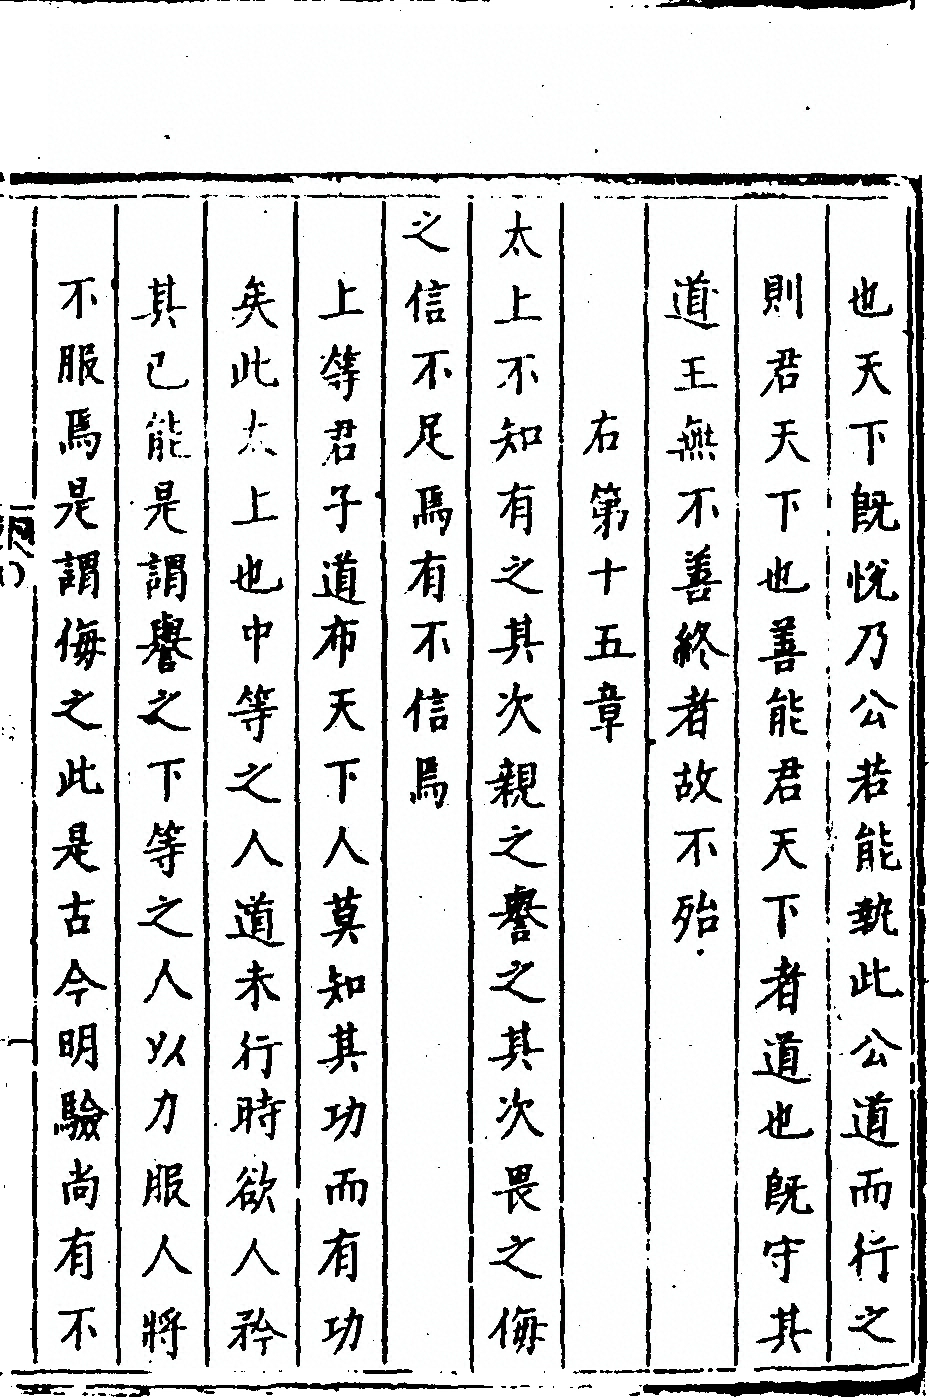 也天下既悅乃公若能執此公道而行之
則君天下也善能君天下者道也既守其
道王無不善終者故不殆
右第十五章
太上不知有之其次親之譽之其次畏之侮
之信不足焉有不信焉
上等君子道布天下人莫知其功而有功
矣此太上也中等之人道未行時欲人矜
其已能是謂譽之下等之人以力服人將
不服焉是謂侮之此是古今明驗尚有不